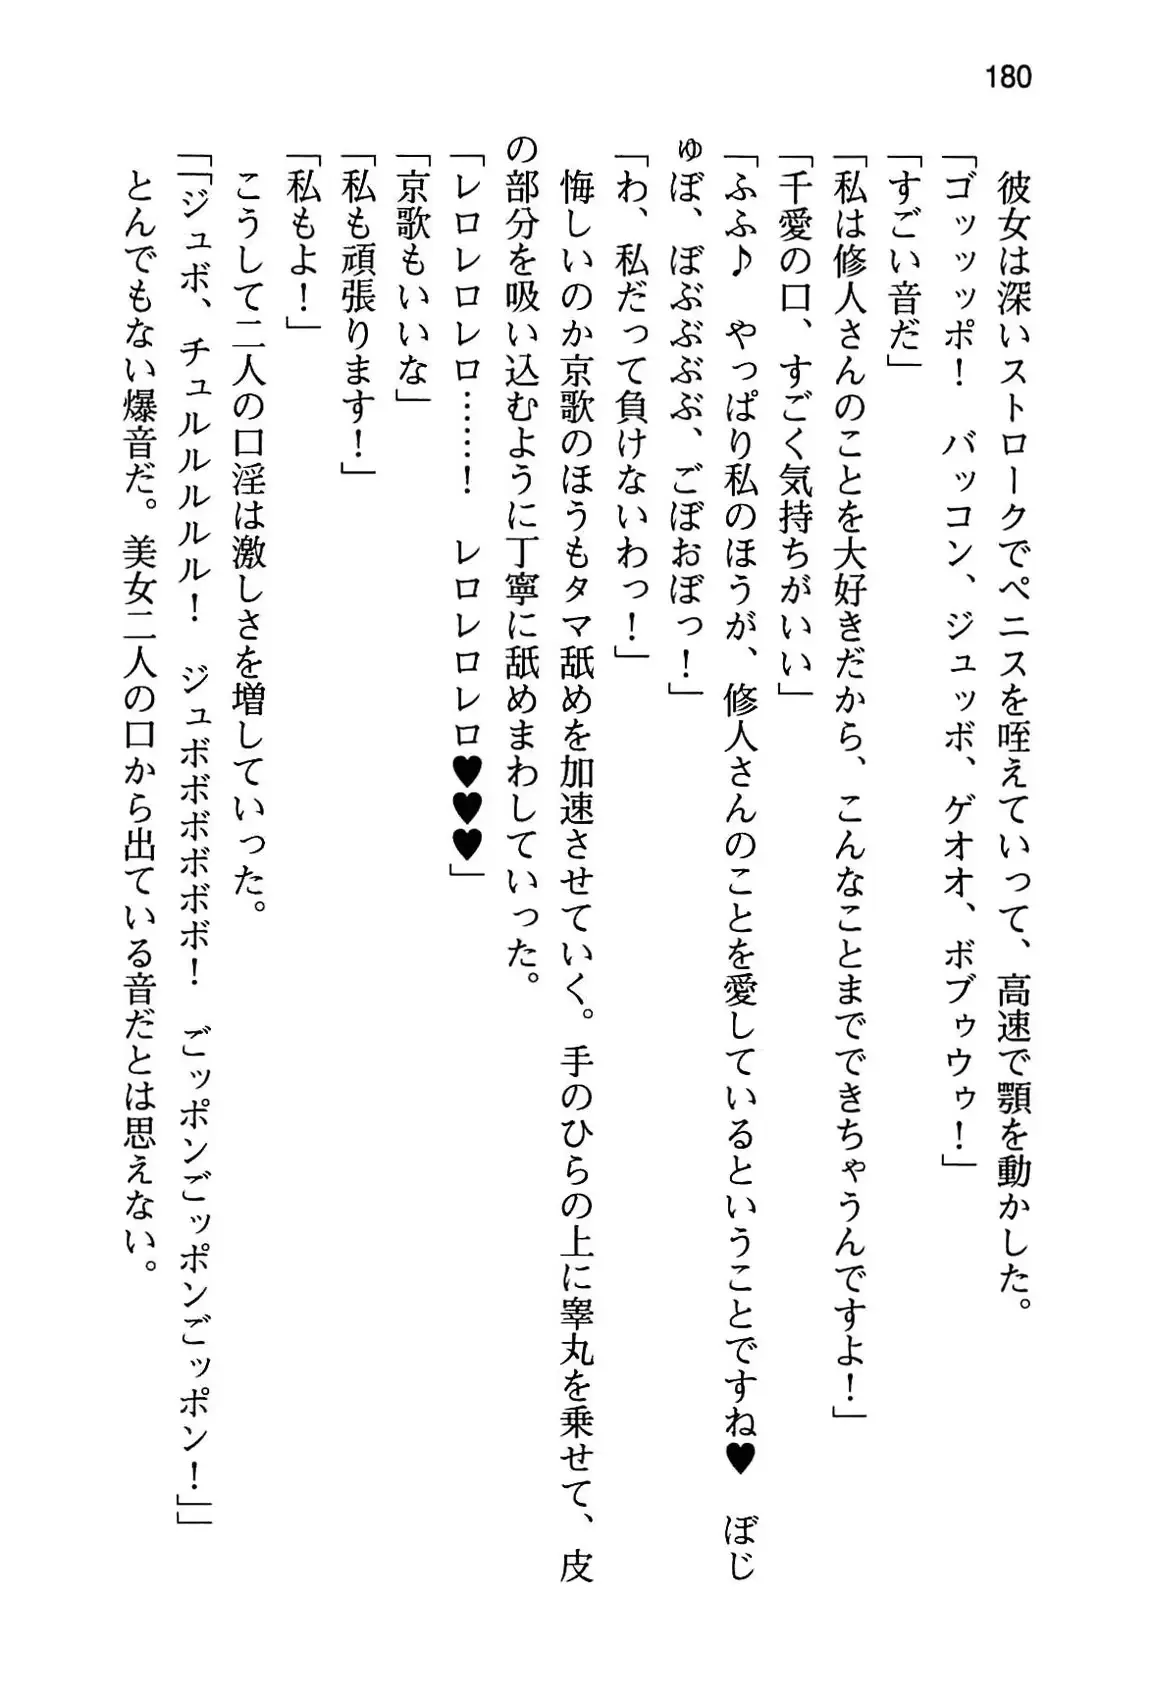 180
　彼女は深いストロークでペニスを咥えていって、高速で顎を動かした。
「ゴッッッポ！　バッコン、ジュッボ、ゲオオ、ボブゥウゥ！」
「すごい音だ」
「私は修人さんのことを大好きだから、こんなことまでできちゃうんですよ！」
「千愛の口、すごく気持ちがいい」
「ふふ♪　やっぱり私のほうが、修人さんのことを愛しているということですね♥　ぼじ
ゅぼ、ぼぶぶぶぶ、ごぼおぼっ！」
「わ、私だって負けないわっ！」
　悔しいのか京歌のほうもタマ舐めを加速させていく。手のひらの上に睾丸を乗せて、皮
の部分を吸い込むように丁寧に舐めまわしていった。
「レロレロレロ……！　レロレロレロ♥♥♥」
「京歌もいいな」
「私も頑張ります！」
「私もよ！」
　こうして二人の口淫は激しさを増していった。
「「ジュボ、チュルルルルル！　ジュボボボボボボ！　ごッポンごッポンごッポン！」」
　とんでもない爆音だ。美女二人の口から出ている音だとは思えない。